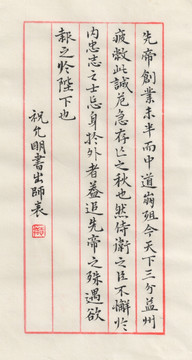 先帝創業未半而中道崩殂今天下三分益州
疲敝此誠危急存亡之秋也然侍衛之臣不懈於
內忠志之士忘身於外者蓋追先帝之殊遇欲
報之於陛下也
祝允明書出師表